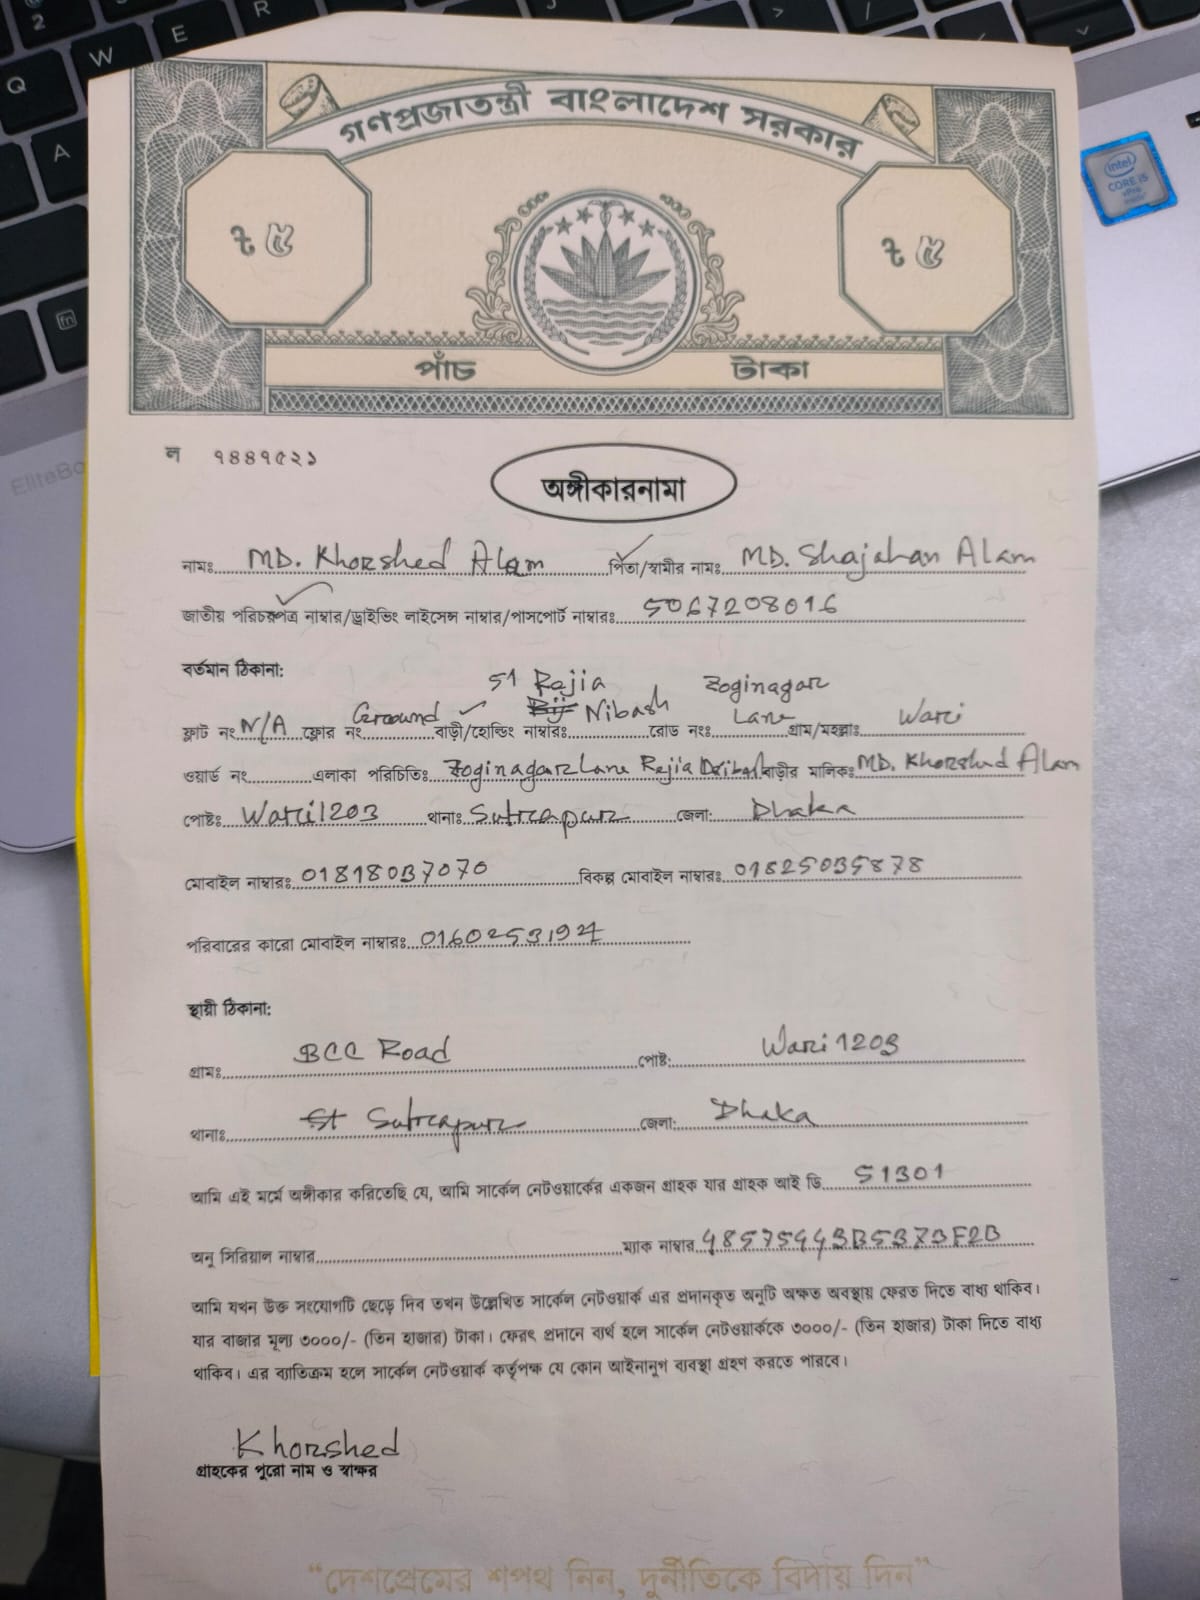 গণপ্রজাতন্ত্রী বাংলাদেশ সরকার
৳ ৫ ৳ ৫
পাঁচ টাকা
ল ৭৪৪৭৫২১
অঙ্গীকারনামা
নামঃ MD. Khorshed Alam পিতা/স্বামীর নামঃ MD. Shajahan Alam
জাতীয় পরিচয়পত্র নাম্বার/ড্রাইভিং লাইসেন্স নাম্বার/পাসপোর্ট নাম্বারঃ 5067208016
বর্তমান ঠিকানা:
51 Rajia Zoginagar
ফ্লাট নং N/A ফ্লোর নং Ground বাড়ী/হোল্ডিং নাম্বারঃ Nibash রোড নংঃ Lane গ্রাম/মহল্লাঃ Wari
ওয়ার্ড নং এলাকা পরিচিতিঃ Zoginagar Lane Rajia বাড়ীর মালিকঃ MD. Khorshed Alam
পোষ্টঃ Wari 1203 থানাঃ Sutrapur জেলা: Dhaka
মোবাইল নাম্বারঃ 01818037070 বিকল্প মোবাইল নাম্বারঃ 01825035878
পরিবারের কারো মোবাইল নাম্বারঃ
স্থায়ী ঠিকানা:
গ্রামঃ BCC Road পোষ্ট: Wari 1203
থানাঃ Sutrapur জেলা: Dhaka
আমি এই মর্মে অঙ্গীকার করিতেছি যে, আমি সার্কেল নেটওয়ার্কের একজন গ্রাহক যার গ্রাহক আই ডি 51301
অনু সিরিয়াল নাম্বার ম্যাক নাম্বার
আমি যখন উক্ত সংযোগটি ছেড়ে দিব তখন উল্লেখিত সার্কেল নেটওয়ার্ক এর প্রদানকৃত অনুটি অক্ষত অবস্থায় ফেরত দিতে বাধ্য থাকিব।
যার বাজার মূল্য ৩০০০/- (তিন হাজার) টাকা। ফেরৎ প্রদানে ব্যর্থ হলে সার্কেল নেটওয়ার্ককে ৩০০০/- (তিন হাজার) টাকা দিতে বাধ্য
থাকিব। এর ব্যাতিক্রম হলে সার্কেল নেটওয়ার্ক কর্তৃপক্ষ যে কোন আইনানুগ ব্যবস্থা গ্রহণ করতে পারবে।
Khorshed
গ্রাহকের পুরো নাম ও স্বাক্ষর
“দেশপ্রেমের শপথ নিন, দুর্নীতিকে বিদায় দিন”
intel
CORE i5
vPro
Q W E R
A
fn